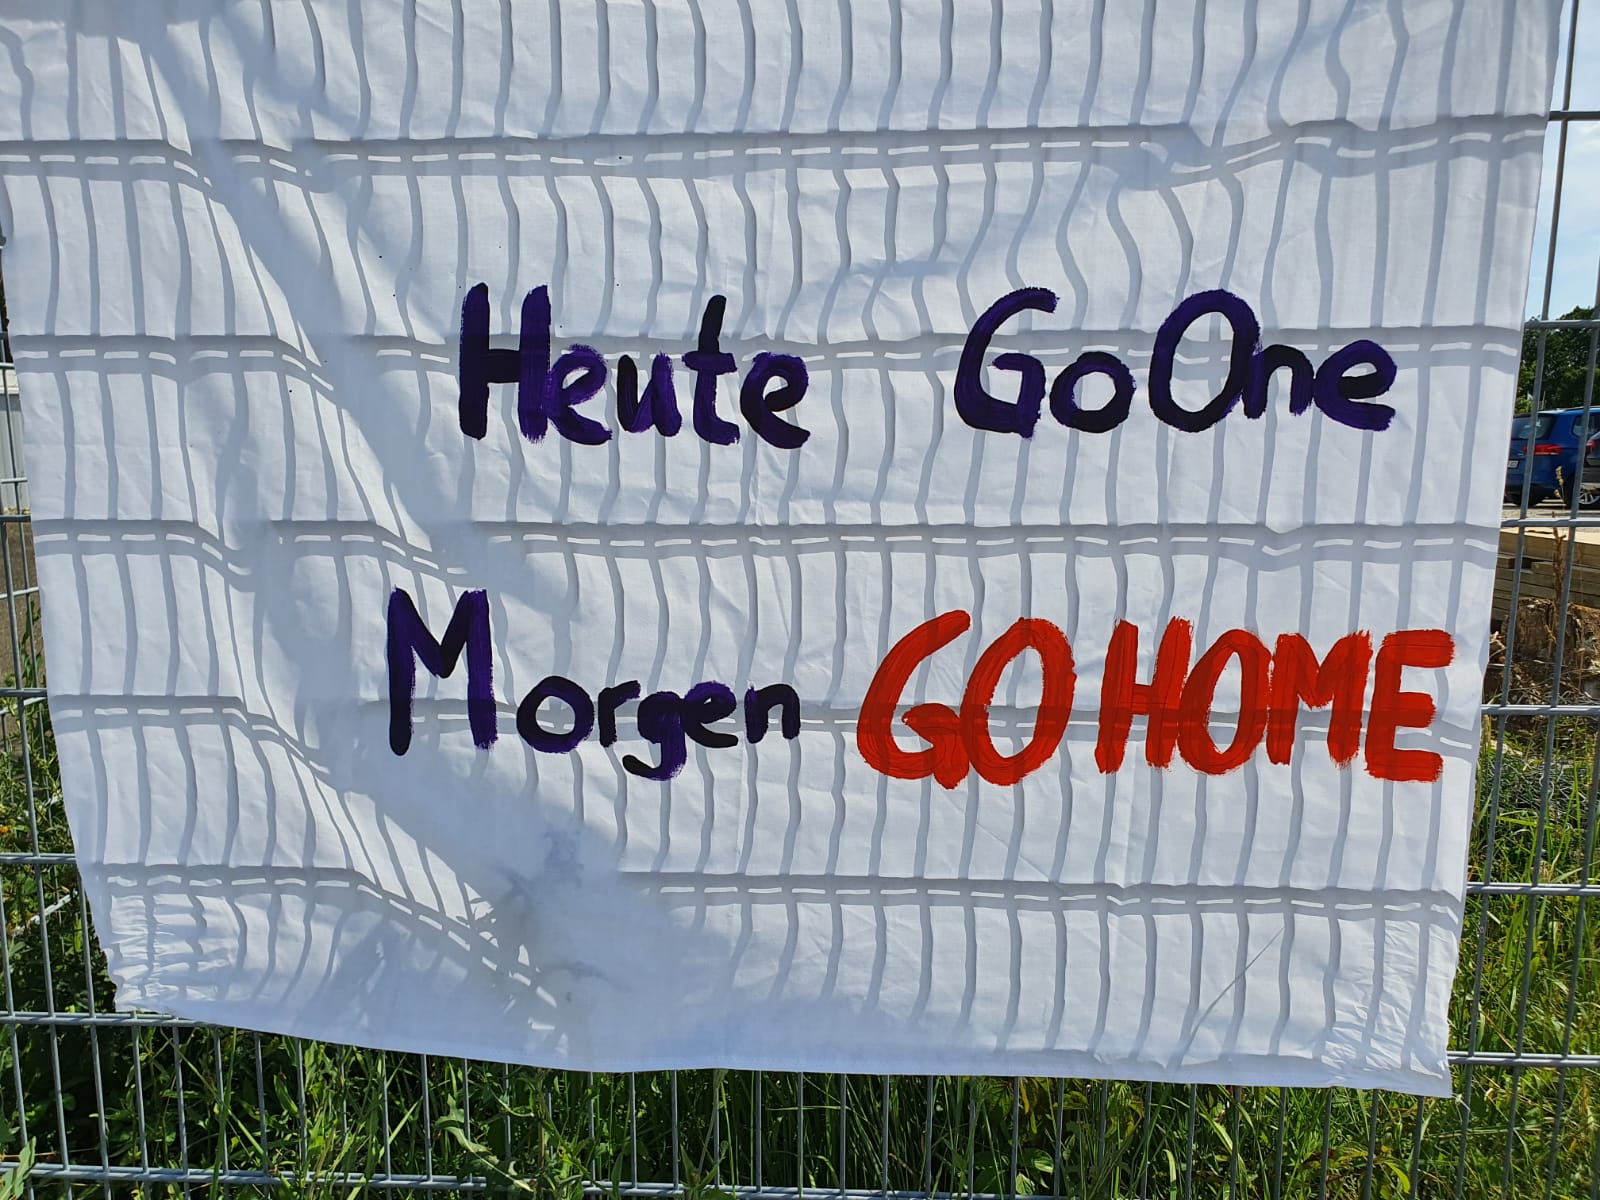 Heute GoOne
Morgen GO HOME